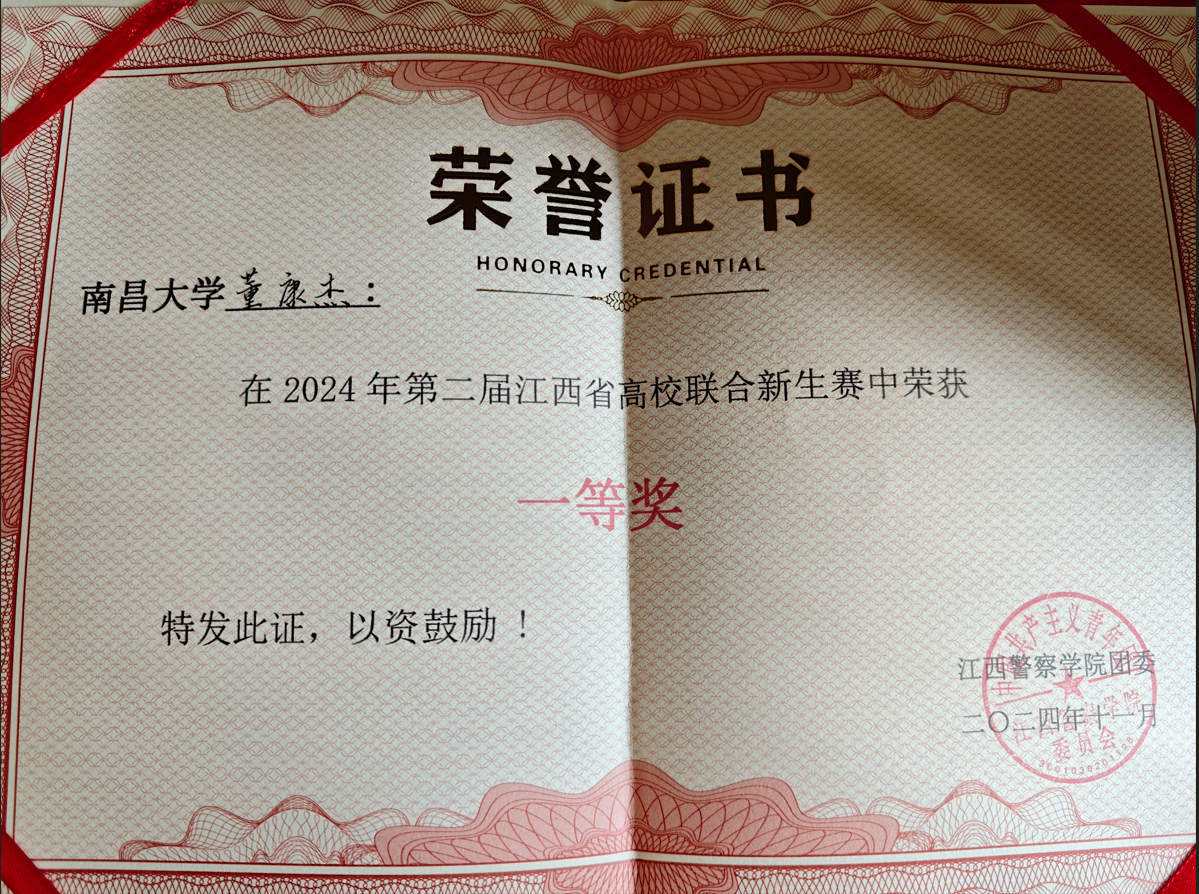 荣誉证书
HONORARY CREDENTIAL
南昌大学董康杰：
在 2024 年第二届江西省高校联合新生赛中荣获
一等奖
特发此证，以资鼓励！
江西警察学院团委
二〇二四年十一月
中国共产主义青年团
江西警察学院
委员会